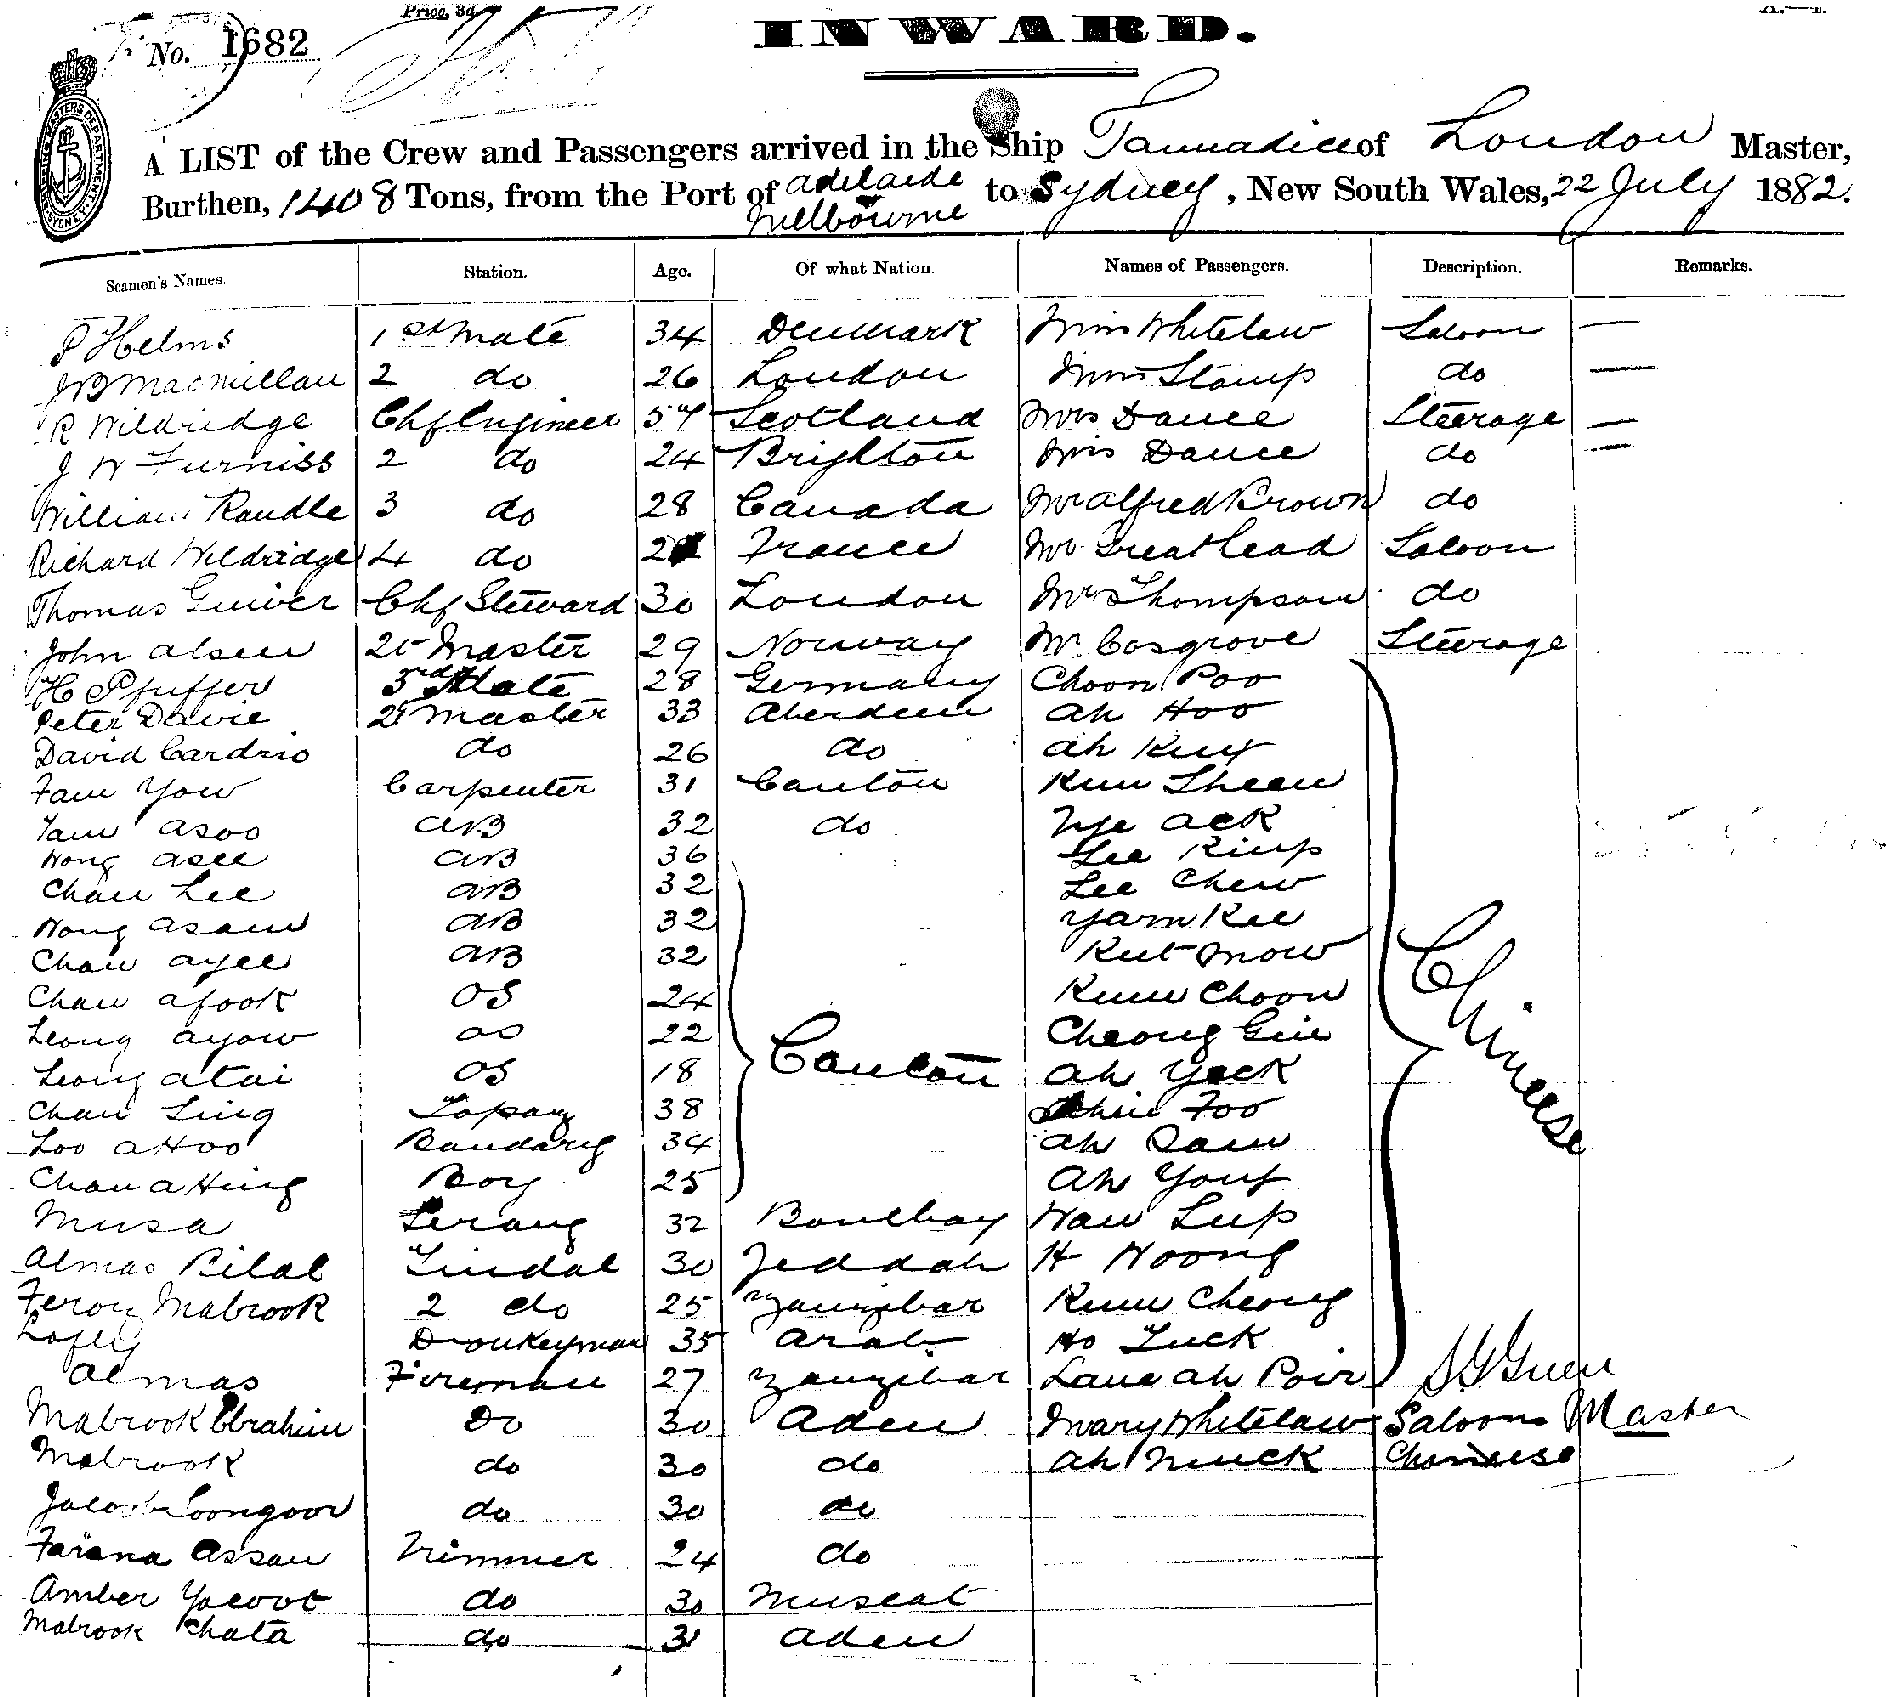 Price, 3d
No. 1682
INWARD.
A LIST of the Crew and Passengers arrived in the Ship Tannadice of London Master,
Burthen, 1408 Tons, from the Port of Adelaide Melbourne to Sydney, New South Wales, 22 July 1882.
Seamen's Names. Station. Age. Of what Nation. Names of Passengers. Description. Remarks.
P Helms 1st Mate 34 Denmark Whitelaw Saloon —
Macmillan 2 do 26 London Stamp do —
R Wildridge Chf Engineer 57 Scotland Mrs Dance Steerage —
J W Furniss 2 do 24 Brighton Miss Dance do —
William Randle 3 do 28 Canada Mr Alfred Brown do
Richard Wildridge 4 do France Greathead Saloon
Thomas Guiver Chf Steward 30 London Thompson do
John Olsen Master 29 Norway Mr Cosgrove Steerage
H Pfuffer 3rd Mate 28 Germany Choon Poo
Peter Davie Master 33 Aberdeen Ah Hoo
David Cardno do 26 do Ah
Fam Yow Carpenter 31 Canton Kum Sheen
Yam Asoo AB 32 do Nye Ack
Wong Asee AB 36 Lee
Chan Lee AB 32 Lee Chew
Wong Asam AB 32 Yam Kee
Chan Ayee AB 32 Kut Mow
Chan Afook OS 24 Kum Choon Chinese
Leong Ayow OS 22 Canton Cheong
Leong Atai OS 18 Ah Yeck
Chan Sing Topaz 38 Foo
Loo AHoo Bandary 34 Ah Sam
Chan AHing Boy 25 Ah
Musa Serang 32 Bombay Lup
Almas Bilal Tindal 30 Jeddah H Hoong
Feroy Mabrook 2 do 25 Zanzibar Kum Cheong
Donkeyman 35 Arab Ho Tuck
Almas Fireman 27 Zanzibar Ah S G Green
Mabrook Ebrahim Do 30 Aden Mary Whitelaw Saloon Master
Mabrook do 30 do Ah Muck Chinese
Soongoor do 30 do
Assan Trimmer 24 do
Amber Yacoot do 30 Muscat
Mabrook Chata do 31 Aden